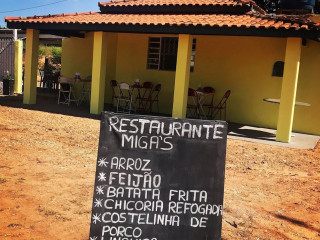 RESTAURANTE
MIGA'S
* ARROZ
* FEIJÃO
* BATATA FRITA
* CHICORIA REFOGADA
* COSTELINHA DE
PORCO